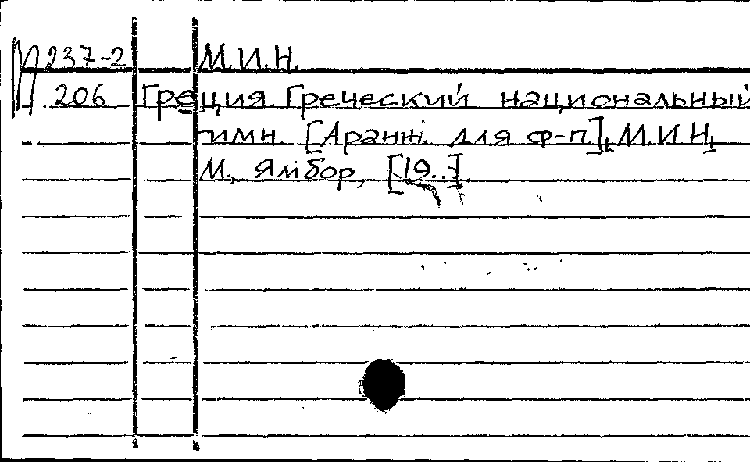 П 237-2 М.И.Н.
206 Греция Греческий национальный
гимн. [Аранж. для ф-п.], М.И.Н,
М., Ямбор, [19..].